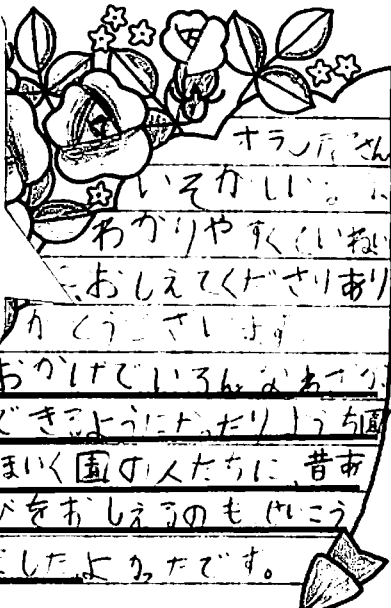 オランダさん
いそがしい
わかりやすくていねい
おしえてくださりあり
がとうございます
おかげでいろんなわざが
できるようになったりようち園
ほいく園の人たちに、昔あ
びをおしえるのもせいこう
したよかったです。